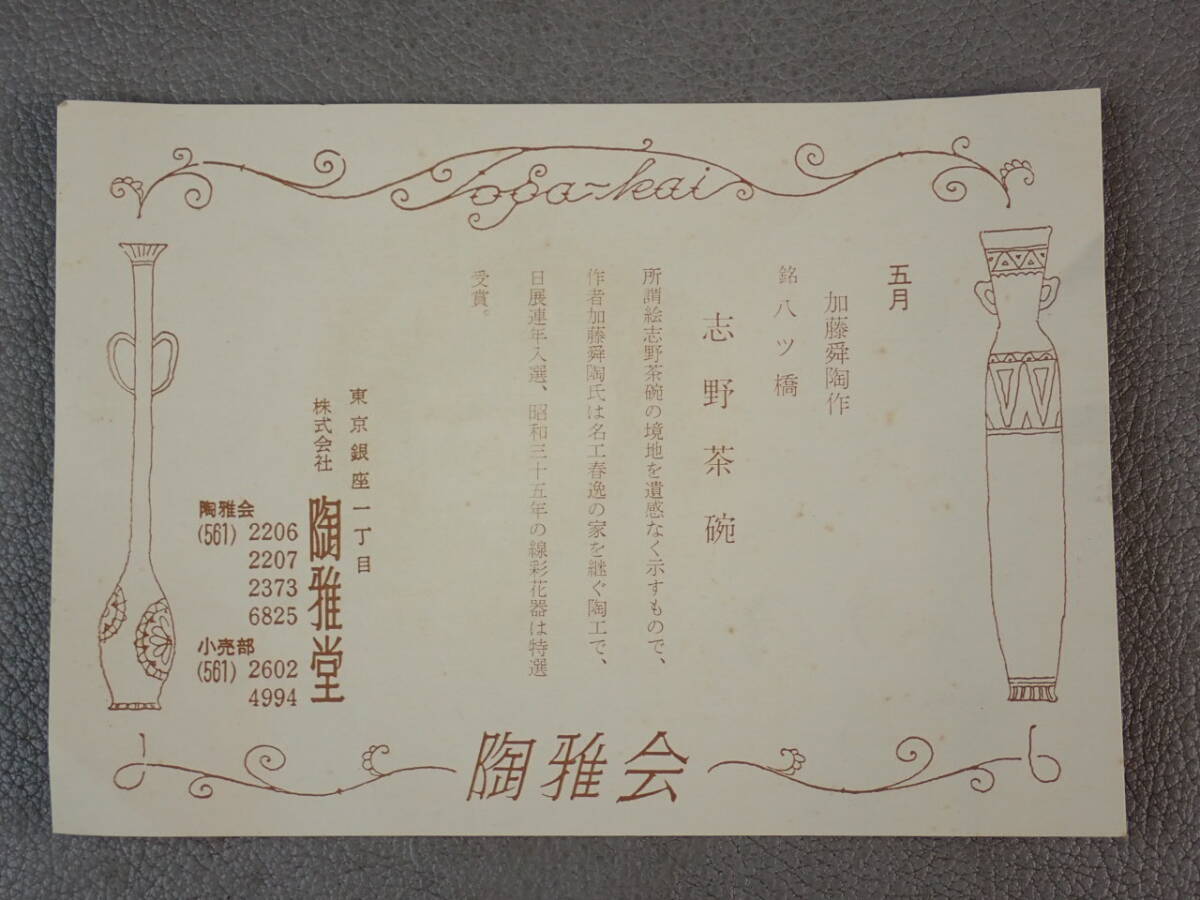 Toga-kai
五月
加藤舜陶作
銘八ツ橋
志野茶碗
所謂絵志野茶碗の境地を遺感なく示すもので、
作者加藤舜陶氏は名工春逸の家を継ぐ陶工で、
日展連年入選、昭和三十五年の線彩花器は特選
受賞。
東京銀座一丁目
株式会社 陶雅堂
陶雅会
(561) 2206
2207
2373
6825
小売部
(561) 2602
4994
陶雅会